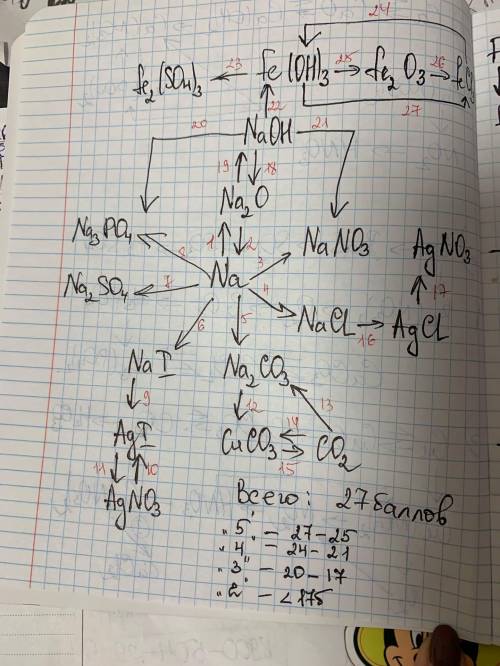 24
Fe₂(SO₄)₃ 23 Fe(OH)₃ 25 Fe₂O₃ 26 FeCl₃
27
22
20 NaOH 21
19 18
Na₂O
Na₃PO₄ 8 1 2 3 NaNO₃ AgNO₃
Na₂SO₄ 7 Na 4 17
NaCl 16 AgCl
6 5
NaI Na₂CO₃
9 12 13
AgI CuCO₃ 14 15 CO₂
11 10
AgNO₃
Всего: 27 баллов
"5" – 27–25
"4" – 24–21
"3" – 20–17
"2" –